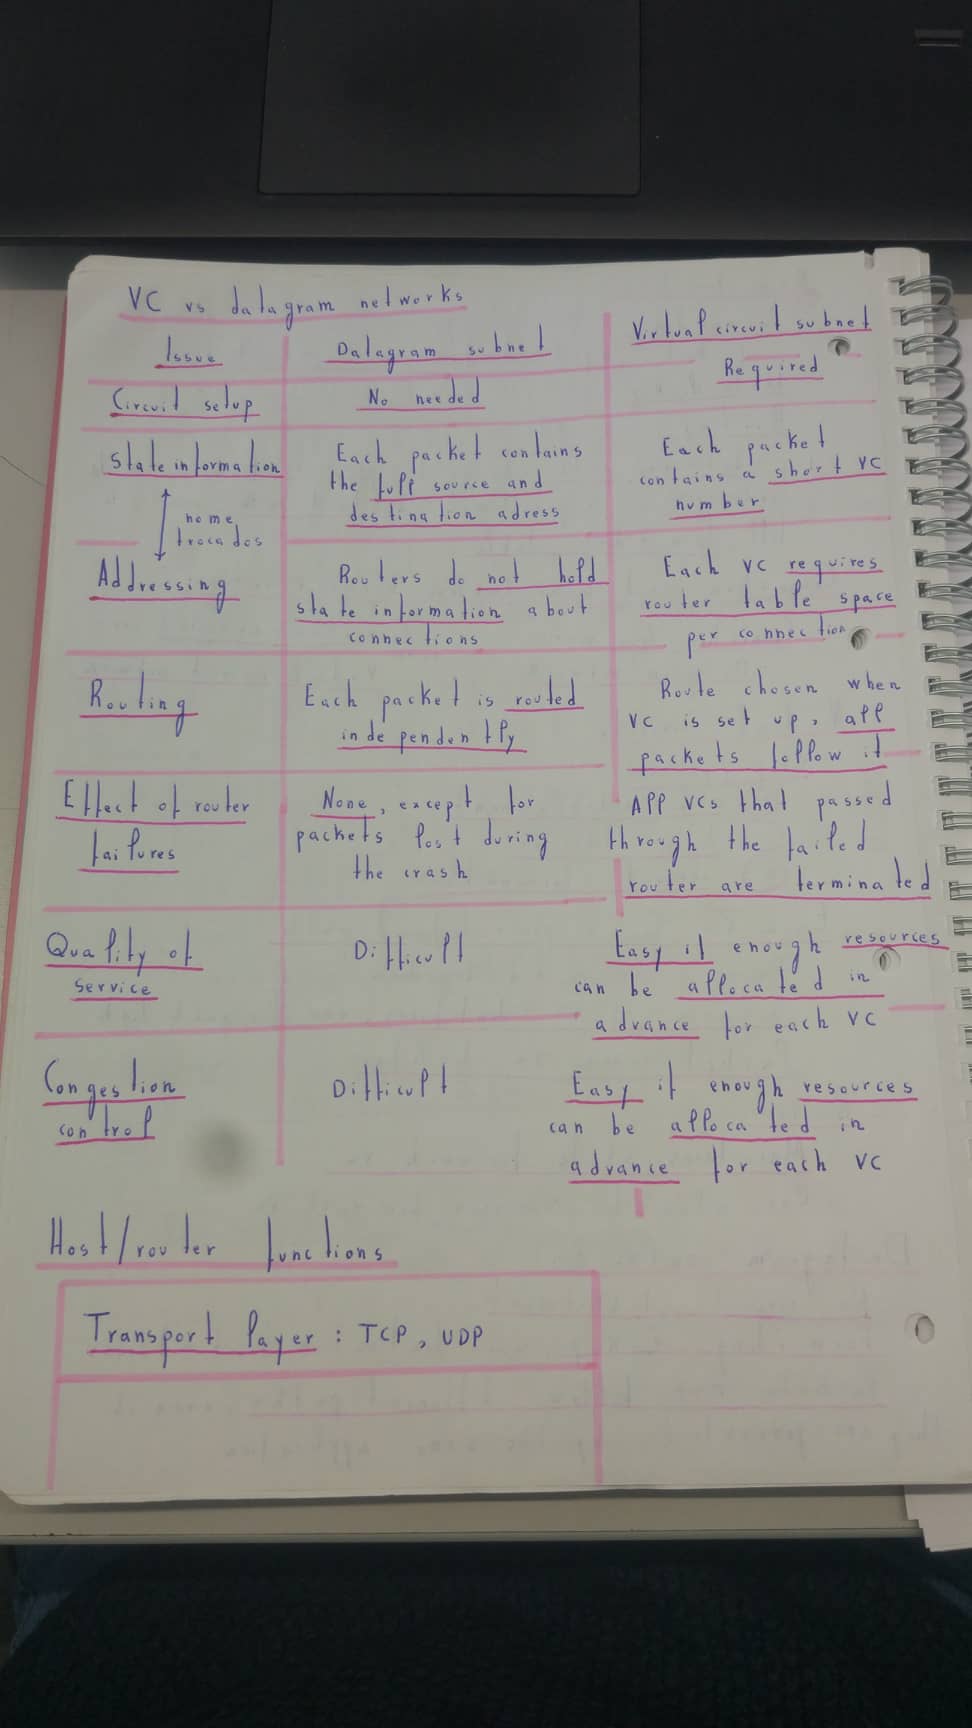 VC vs datagram networks
Issue
Datagram subnet
Virtual circuit subnet
Circuit setup
No needed
Required
State information
Each packet contains
the full source and
destination adress
Each packet
contains a short VC
number
nome
trocados
Addressing
Routers do not hold
state information about
connections
Each VC requires
router table space
per connection
Routing
Each packet is routed
independently
Route chosen when
VC is set up, all
packets follow it
Effect of router
failures
None, except for
packets lost during
the crash
All VCs that passed
through the failed
router are terminated
Quality of
service
Difficult
Easy if enough resources
can be allocated in
advance for each VC
Congestion
control
Difficult
Easy if enough resources
can be allocated in
advance for each VC
Host/router functions
Transport layer : TCP, UDP